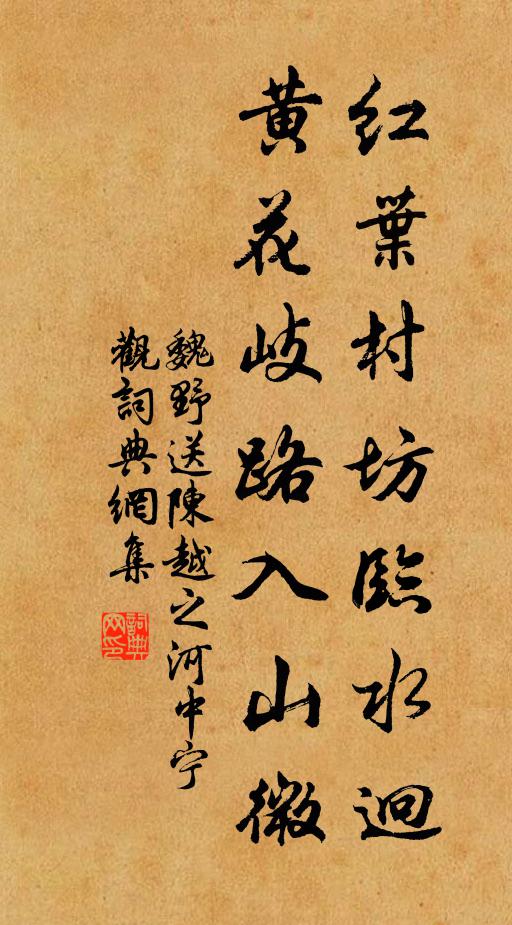 紅葉村坊臨水迥
黄花歧路入山微
魏野送陳越之河中宁
觀詞典網集
詞典网印